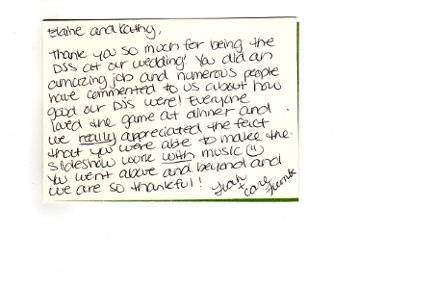 Elaine and Kathy,
Thank you so much for being the
DJs at our wedding! You did an
amazing job and numerous people
have commented to us about how
good our DJs were! Everyone
loved the game at dinner and
we really appreciated the fact
that you were able to make the
slideshow work with music
You went above and beyond and
we are so thankful!